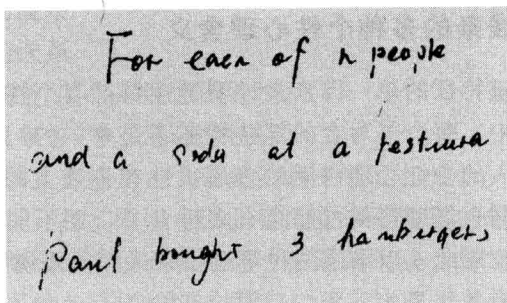 For each of n people
and a soda at a restaura
Paul bought 3 hamburgers